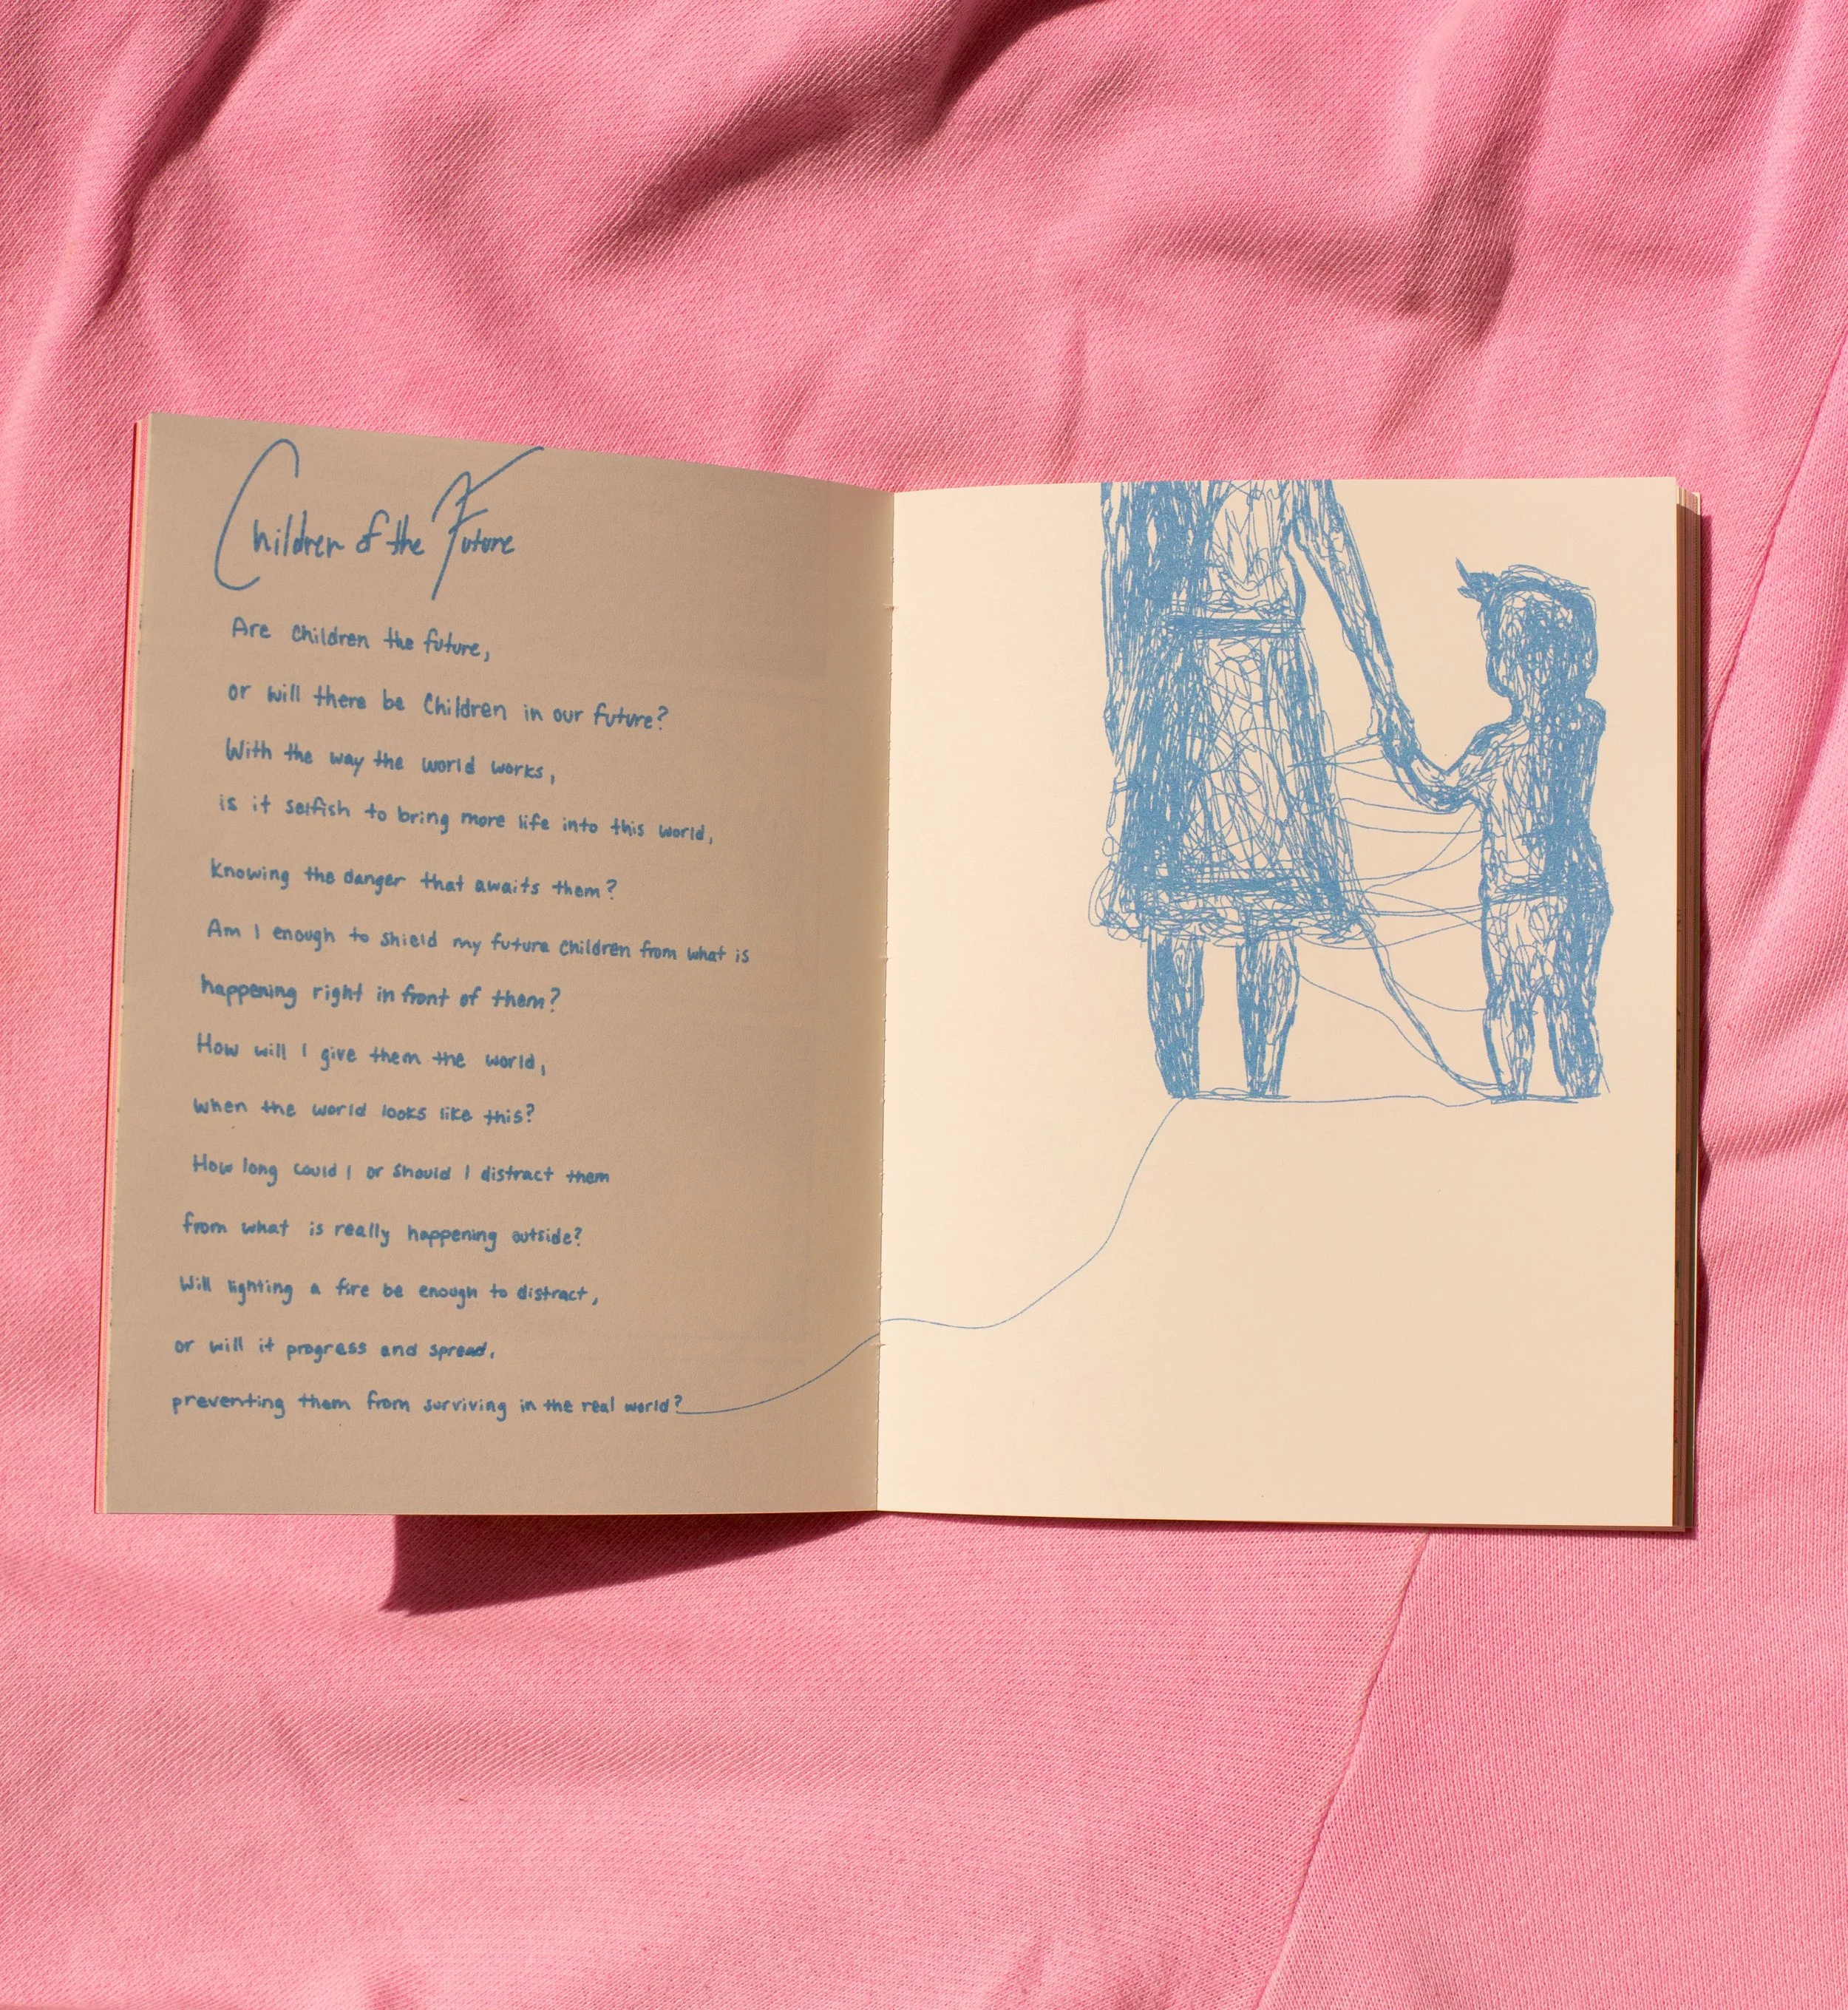 Children of the Future
Are Children the future,
or will there be Children in our future?
With the way the world works,
is it selfish to bring more life into this world,
knowing the danger that awaits them?
Am I enough to shield my future Children from what is
happening right in front of them?
How will I give them the world,
when the world looks like this?
How long could I or should I distract them
from what is really happening outside?
Will lighting a fire be enough to distract,
or will it progress and spread,
preventing them from surviving in the real world?